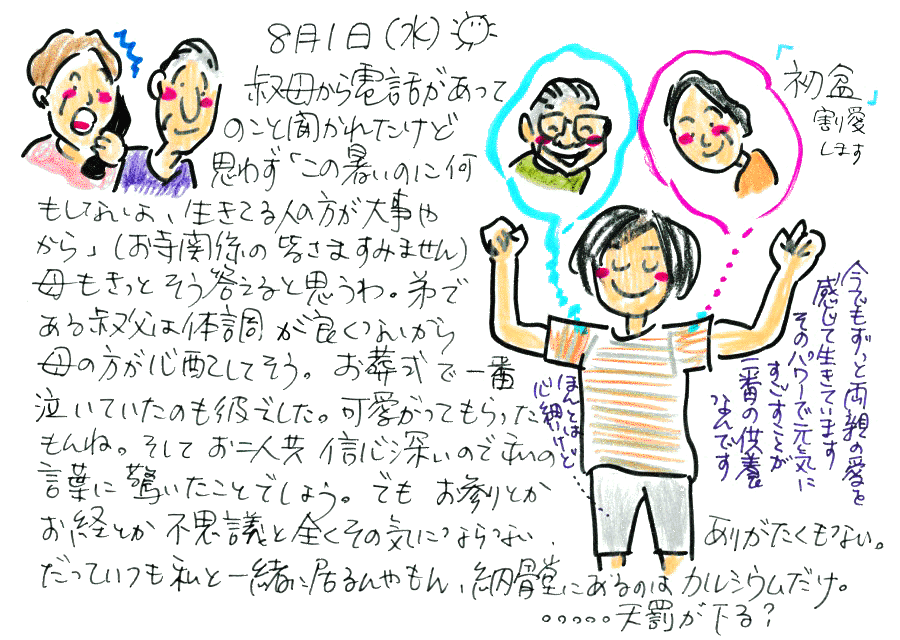 8月1日(水)
叔母から電話があって
のこと聞かれたけど
思わず「この暑いのに何
もしないよ、生きてる人の方が大事や
から」(お寺関係の皆さますみません)
母もきっとそう答えると思うわ。弟で
ある叔父は体調が良くないから
母の方が心配してそう。お葬式で一番
泣いていたのも彼でした。可愛がってもらった
もんね。そしてお二人共信心深いので私の
言葉に驚いたことでしょう。でもお参りとか
お経とか不思議と全くその気にならない、
だっていつも私と一緒に居るんやもん、納骨堂にあるのはカルシウムだけ。
ありがたくもない。
.....天罰が下る?
「初盆」
割愛
します
今でもずっと両親の愛を
感じて生きています
そのパワーで元気に
すごすことが
一番の供養
なんです
ほんとは
心細いけど